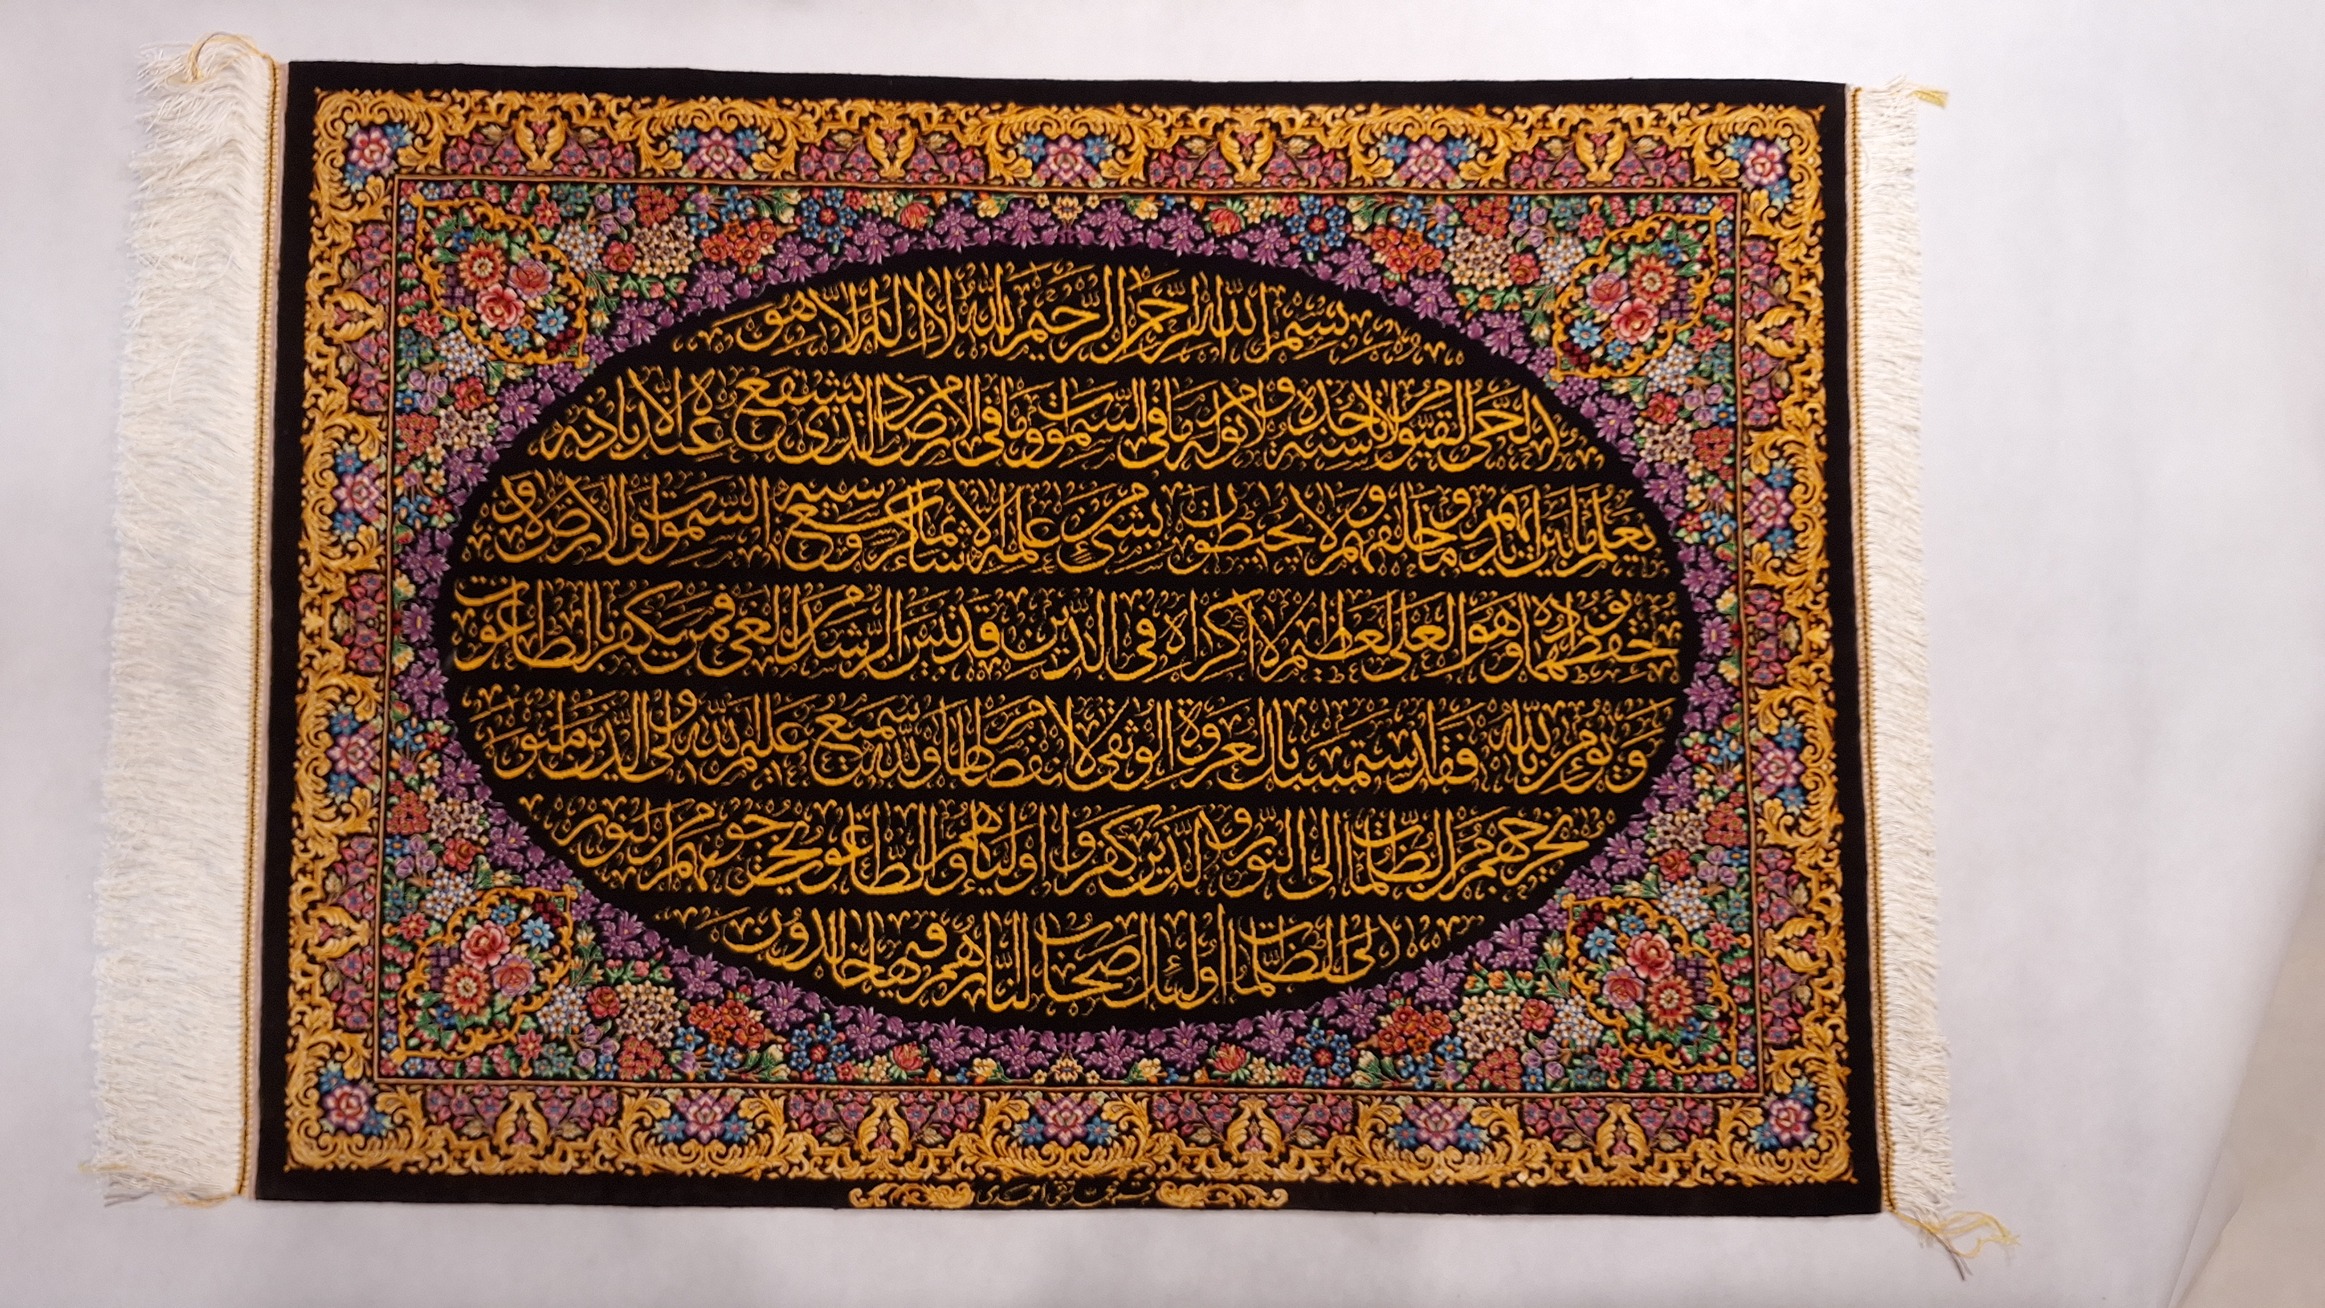 بسم الله الرحمن الرحیم الله لا اله الا هو
الحی القیوم لا تاخذه سنة و لا نوم له ما فی السموات و ما فی الارض من ذا الذی یشفع عنده الا باذنه
یعلم ما بین ایدیهم و ما خلفهم و لا یحیطون بشیء من علمه الا بما شاء وسع کرسیه السموات و الارض و لا یؤده
حفظهما و هو العلی العظیم لا اکراه فی الدین قد تبین الرشد من الغی فمن یکفر بالطاغوت
و یؤمن بالله فقد استمسک بالعروة الوثقی لا انفصام لها و الله سمیع علیم الله ولی الذین آمنوا
یخرجهم من الظلمات الی النور و الذین کفروا اولیاؤهم الطاغوت یخرجونهم من النور
الی الظلمات اولئک اصحاب النار هم فیها خالدون